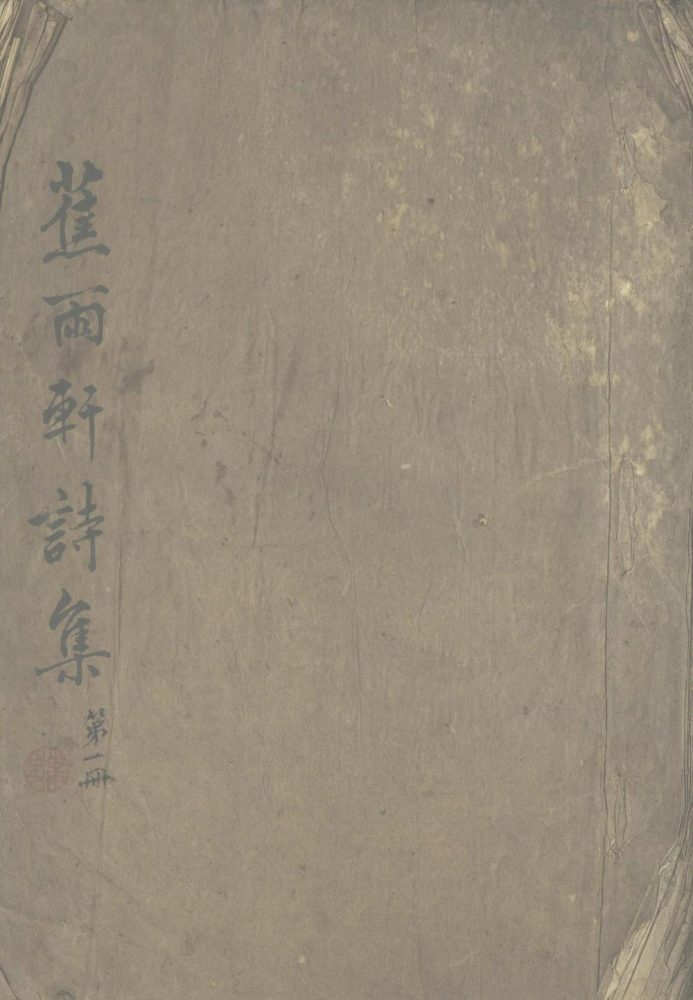 蕉雨軒詩集
第一冊